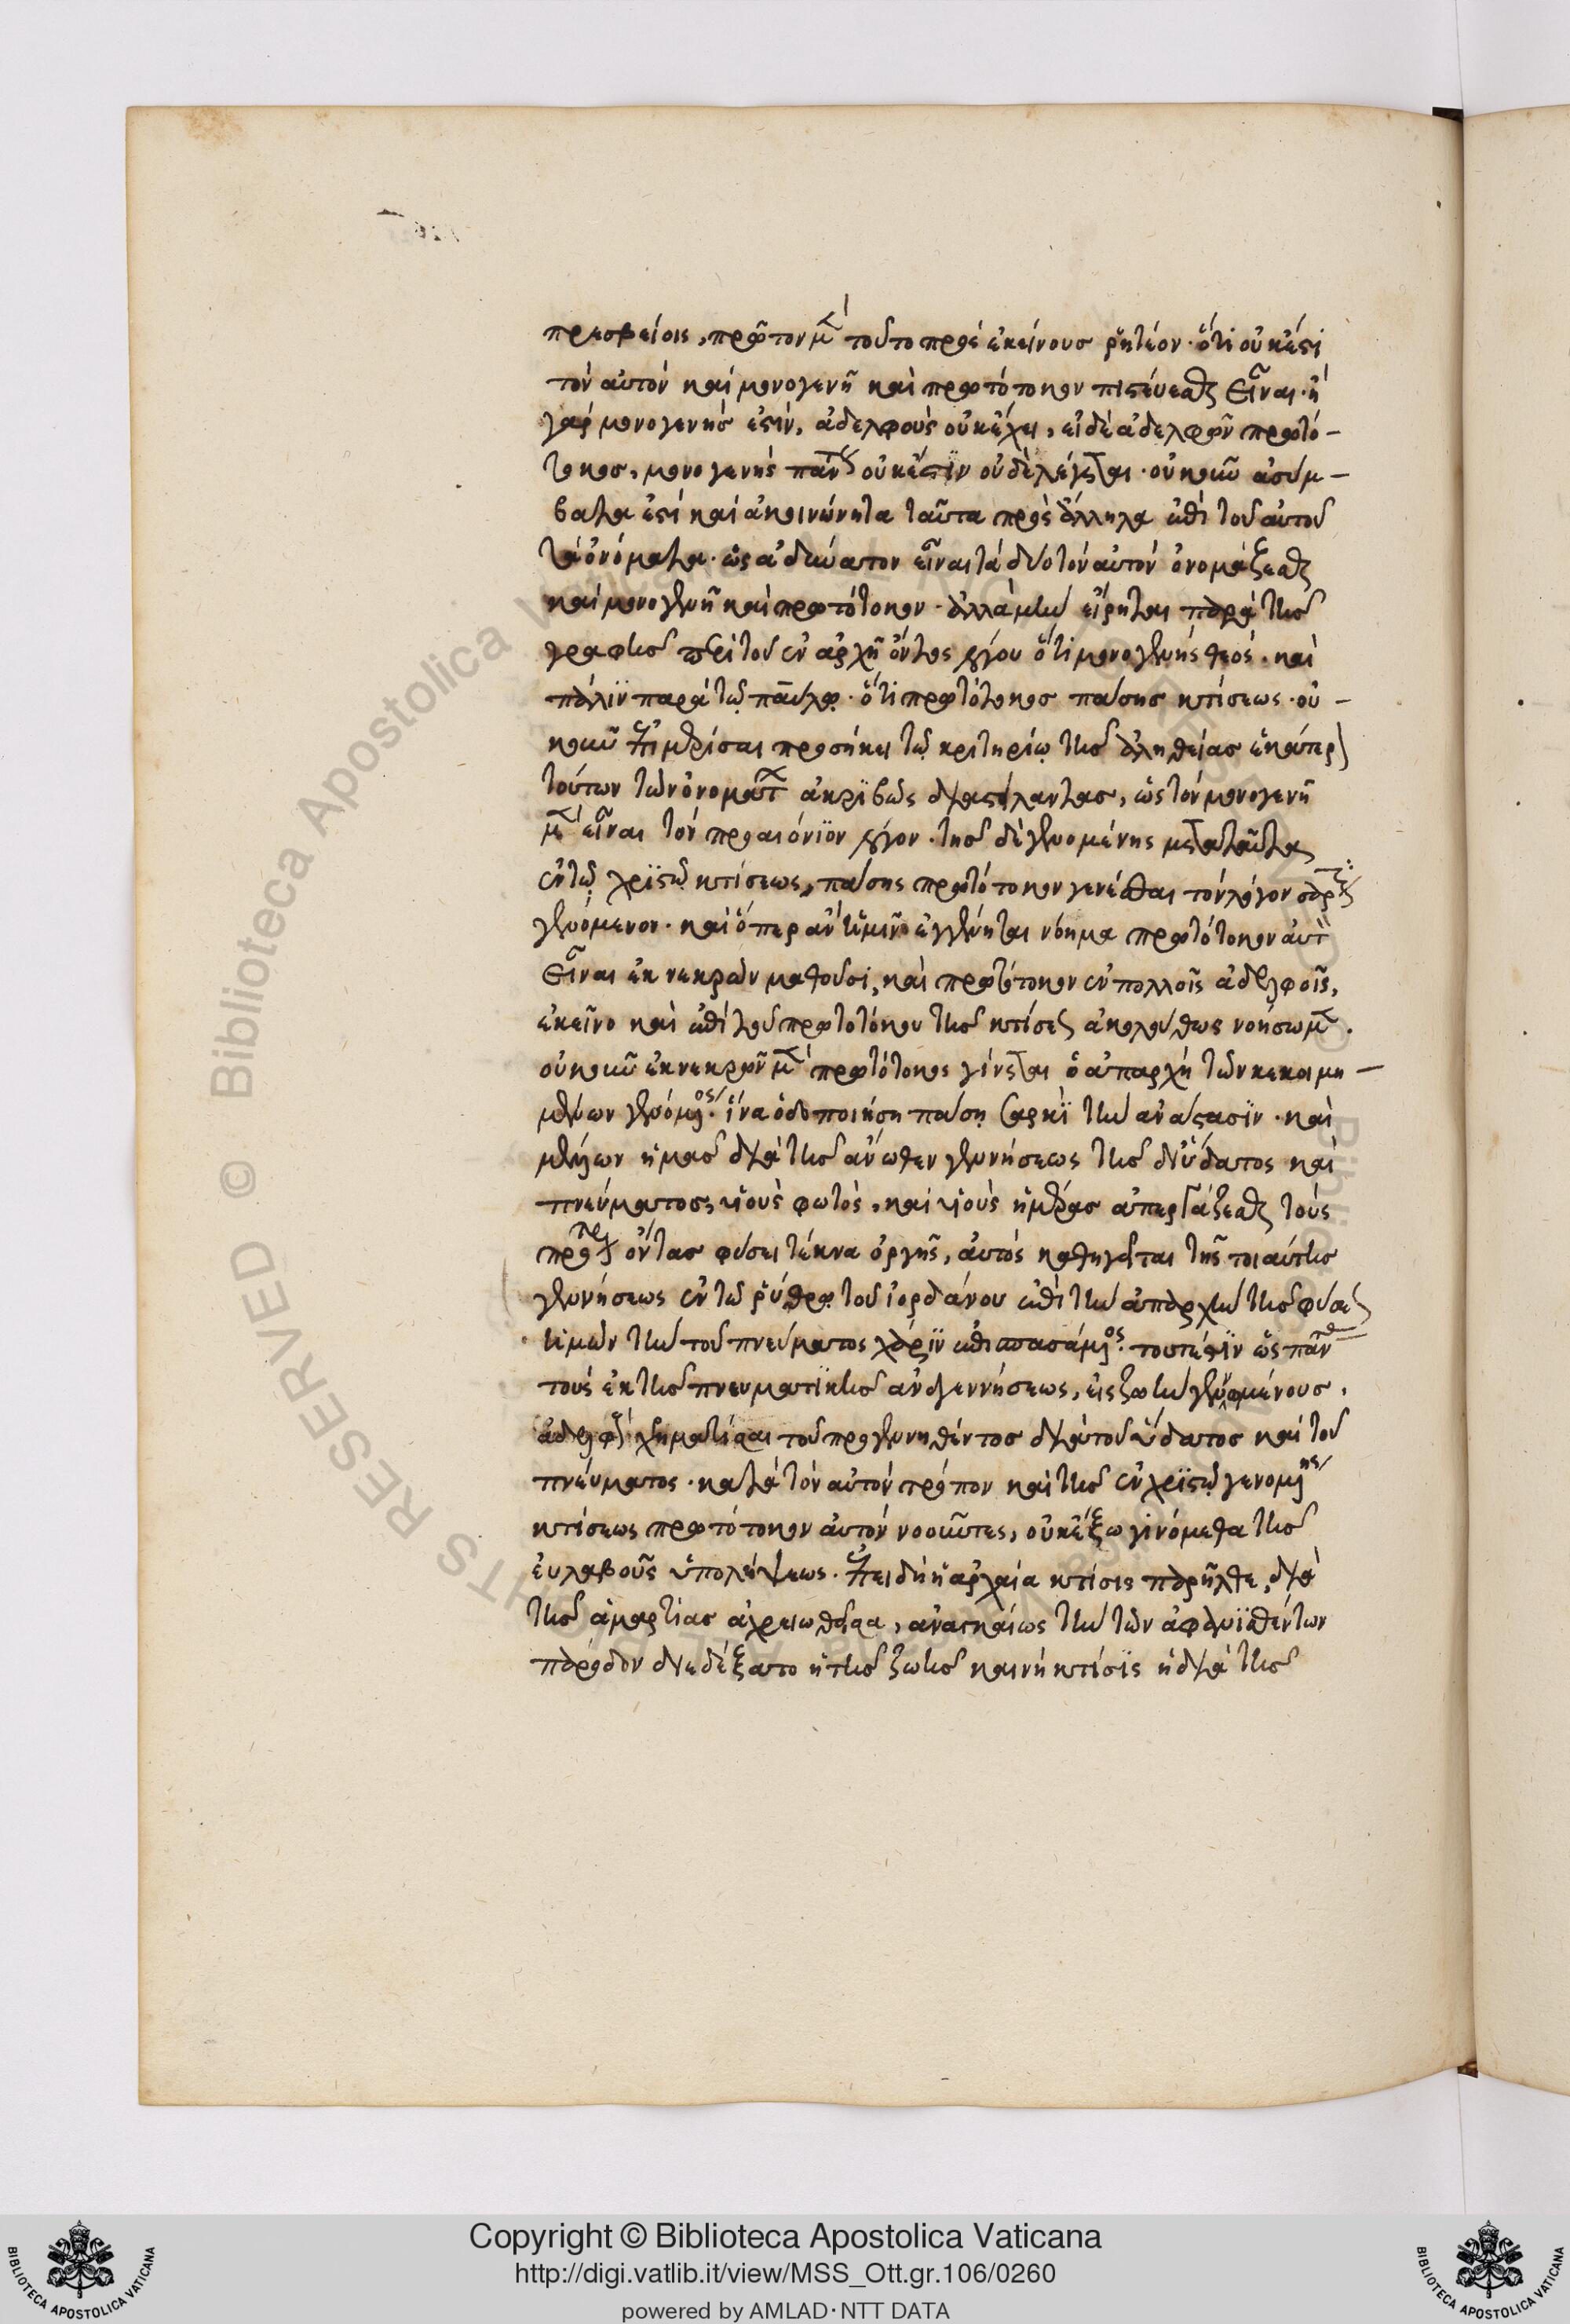 πρεσβείοις, πρῶτον μὲν τοῦτο πρὸς ἐκείνους ῥητέον· ὅτι οὐκ ἔστι
τὸν αὐτὸν καὶ μονογενῆ καὶ πρωτότοκον πιστεύεσθαι εἶναι· ὁ
γὰρ μονογενής ἐστιν, ἀδελφοὺς οὐκ ἔχει, εἰ δὲ ἀδελφῶν πρωτό-
τοκος, μονογενὴς πάντως οὐκ ἔστιν οὐδὲ λέγεται· οὐκοῦν ἀσύμ-
βατα ἐστὶ καὶ ἀκοινώνητα ταῦτα πρὸς ἄλληλα ἐπὶ τοῦ αὐτοῦ
τὰ ὀνόματα· ὡς ἀδύνατον εἶναι τὰ δύο τὸν αὐτὸν ὀνομάζεσθαι
καὶ μονογενῆ καὶ πρωτότοκον· ἀλλὰ μὴν εἴρηται παρὰ τῆς
γραφῆς περὶ τοῦ ἐν ἀρχῇ ὄντος λόγου ὅτι μονογενὴς θεός· καὶ
πάλιν παρὰ τῷ παύλῳ· ὅτι πρωτότοκος πάσης κτίσεως· οὐ-
κοῦν ἐπιμερίσαι προσήκει τῷ κριτηρίῳ τῆς ἀληθείας ἑκάτερον
τούτων τῶν ὀνομάτων ἀκριβῶς διαστείλαντας, ὡς τὸν μονογενῆ
μὲν εἶναι τὸν προαιόνιον λόγον· τῆς δὲ γενομένης μετὰ ταῦτα
ἐν τῷ χριστῷ κτίσεως, πάσης πρωτότοκον γενέσθαι τὸν λόγον σάρκα
γενόμενον· καὶ ὅπερ ἂν ἡμῖν ἐγγένηται νόημα πρωτότοκον αὐτὸν
εἶναι ἐκ νεκρῶν μαθοῦσι, καὶ πρωτότοκον ἐν πολλοῖς ἀδελφοῖς,
ἐκεῖνο καὶ ἐπὶ τοῦ πρωτοτόκου τῆς κτίσεως ἀκολούθως νοήσωμεν.
οὐκοῦν ἐκ νεκρῶν μὲν πρωτότοκος γίνεται ὁ ἀπαρχὴ τῶν κεκοιμη-
μένων γενόμενος· ἵνα ὁδοποιήσῃ πάσῃ σαρκὶ τὴν ἀνάστασιν· καὶ
μέλλων ἡμᾶς διὰ τῆς ἄνωθεν γεννήσεως τῆς δι' ὕδατος καὶ
πνεύματος, υἱοὺς φωτὸς, καὶ υἱοὺς ἡμέρας ἀπεργάζεσθαι τοὺς
πρότερον ὄντας φύσει τέκνα ὀργῆς, αὐτὸς καθηγεῖται τῆς τοιαύτης
γεννήσεως ἐν τῷ ῥείθρῳ τοῦ ἰορδάνου ἐπὶ τὴν ἀπαρχὴν τῆς φύσεως
ἡμῶν τὴν τοῦ πνεύματος χάριν ἐπισπασάμενος· τουτέστιν ὡς πάντας
τοὺς ἐκ τῆς πνευματικῆς ἀναγεννήσεως, εἰς ζωὴν γεννωμένους,
ἀδελφοὺς χρηματίσαι τοῦ προγεννηθέντος διὰ τοῦ ὕδατος καὶ τοῦ
πνεύματος· κατὰ τὸν αὐτὸν τρόπον καὶ τῆς ἐν χριστῷ γενομένης
κτίσεως πρωτότοκον αὐτὸν νοοῦντες, οὐκ ἔξω γινόμεθα τῆς
εὐλαβοῦς ὑπολήψεως· ἐπειδὴ ἡ ἀρχαία κτίσις παρῆλθε, διὰ
τῆς ἁμαρτίας ἀχρειωθεῖσα, ἀναγκαίως τὴν τῶν ἀφανισθέντων
πάροδον διεδέξατο ἡ τῆς ζωῆς καινὴ κτίσις ἡ διὰ τῆς
Copyright © Biblioteca Apostolica Vaticana
http://digi.vatlib.it/view/MSS_Ott.gr.106/0260
powered by AMLAD·NTT DATA